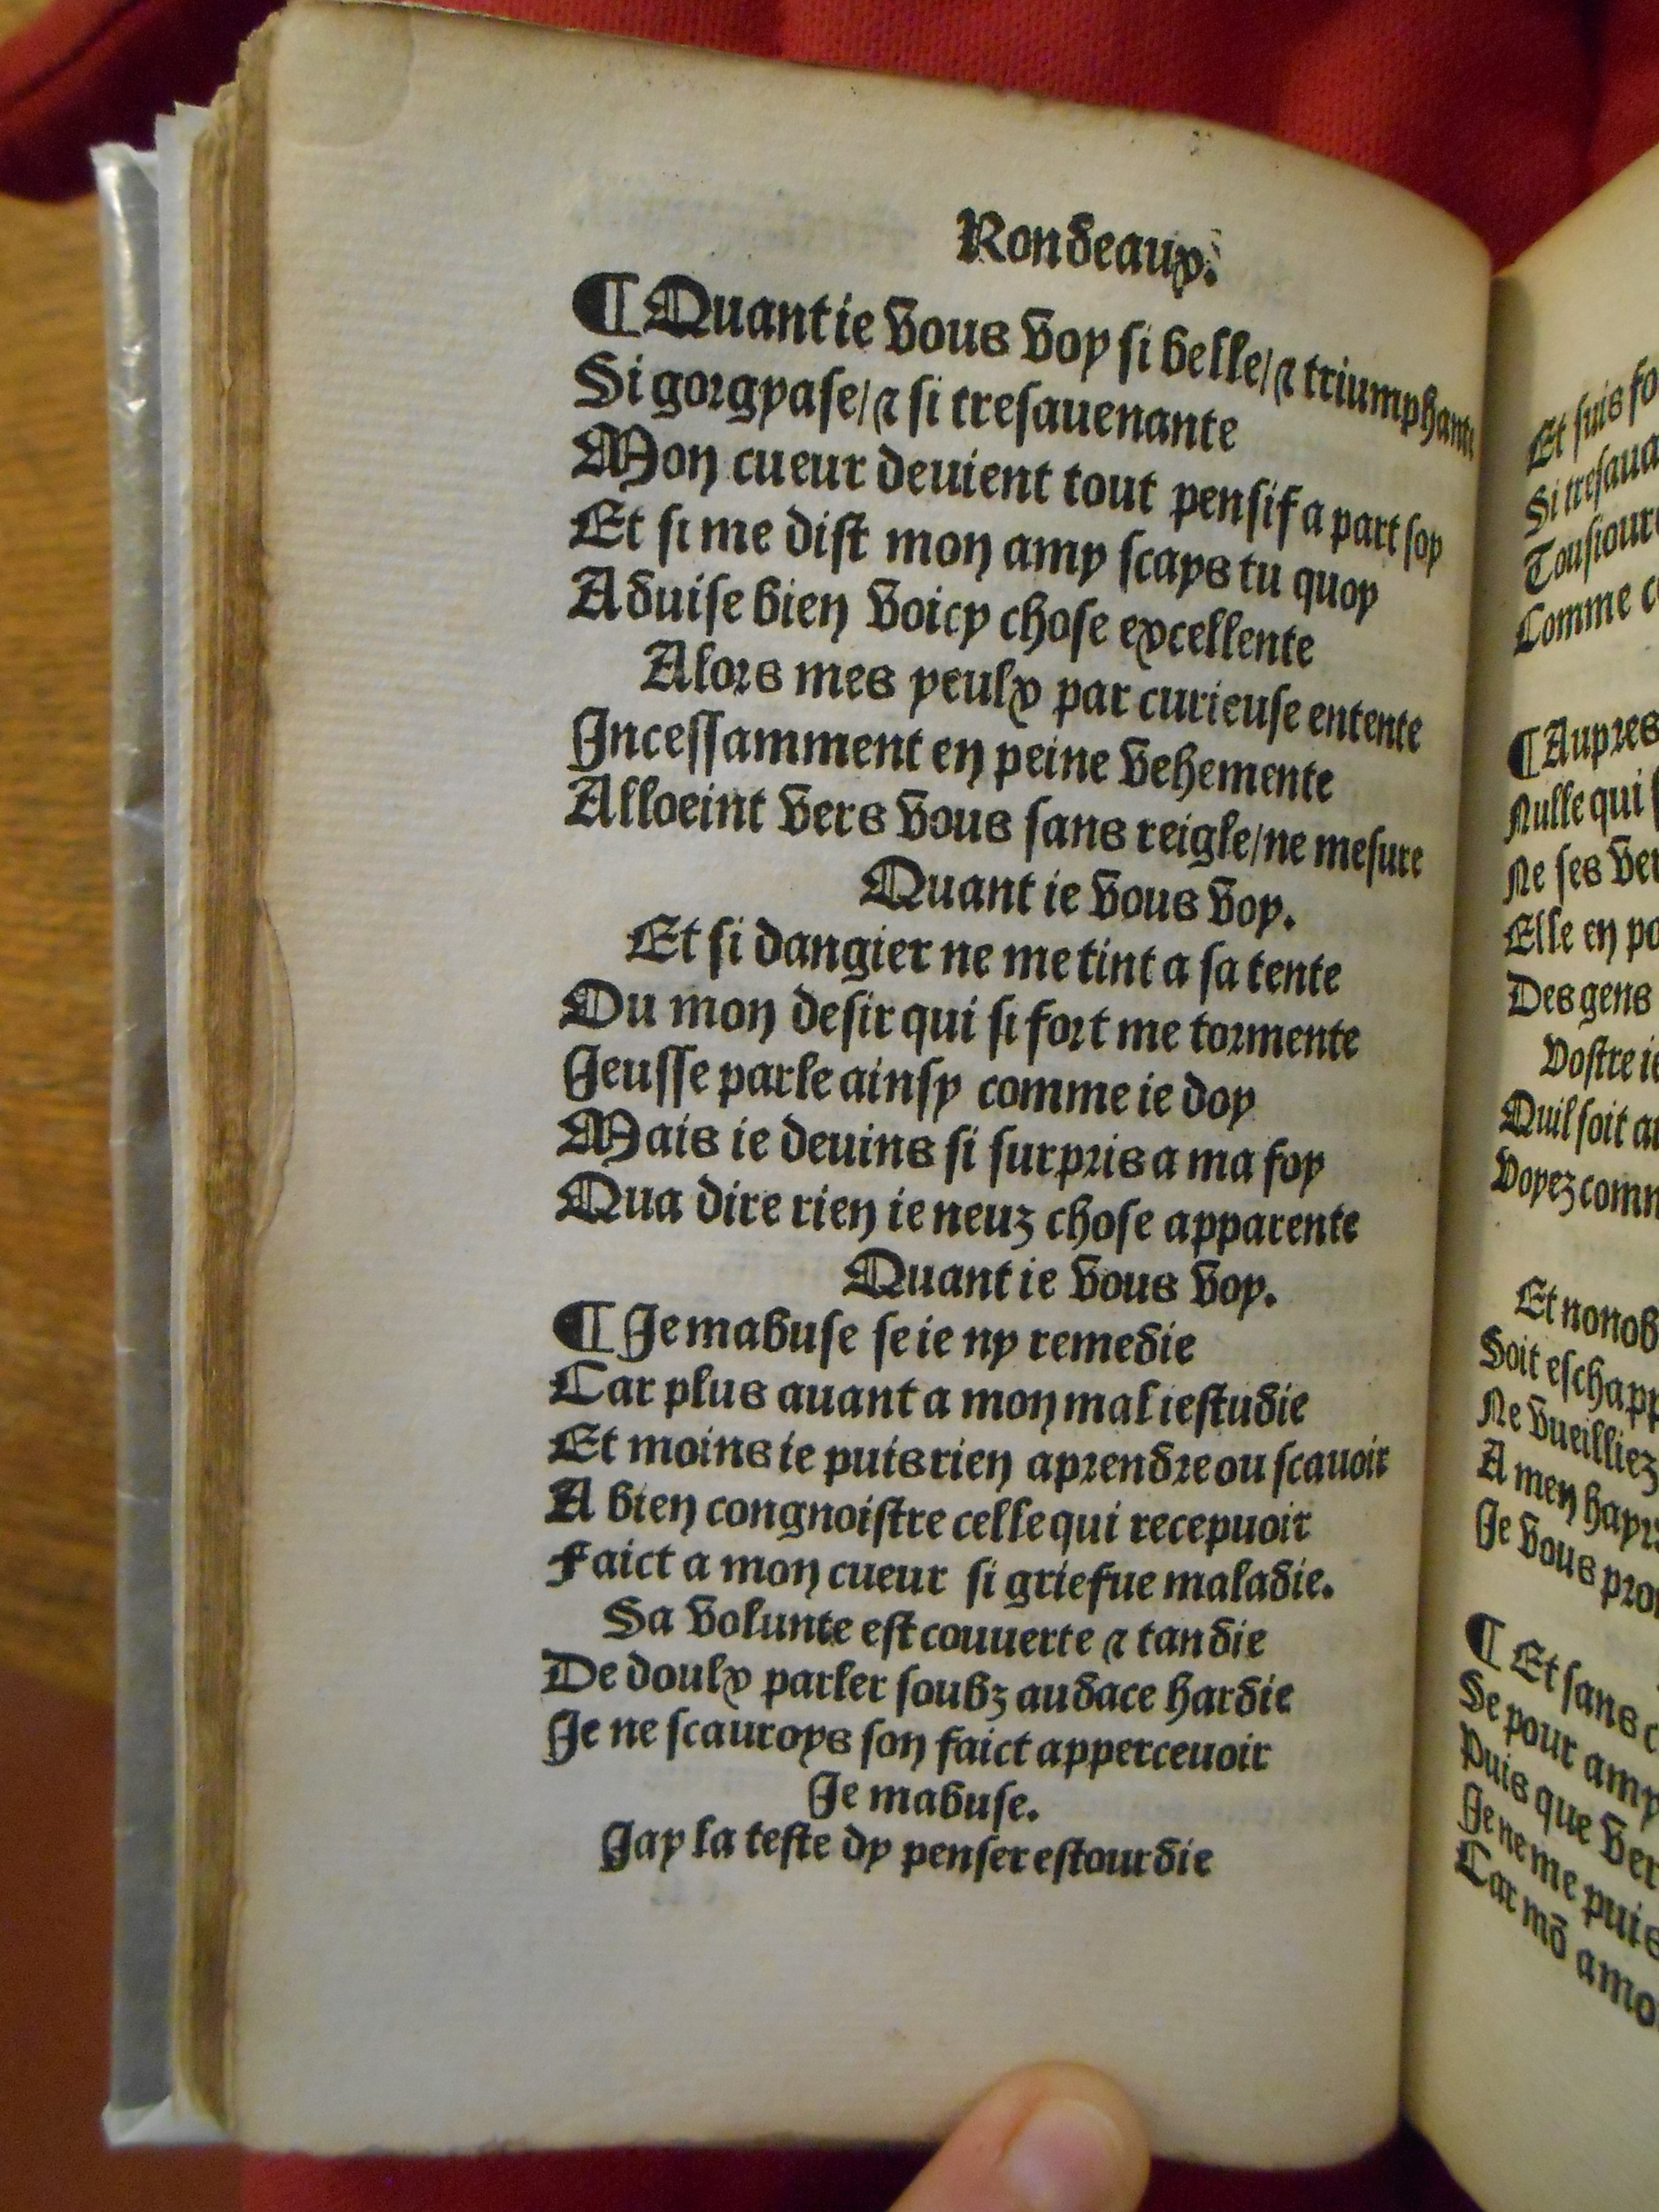 Rondeaux.
¶ Quant ie vous voy si belle/ ⁊ triumphante
Si gorgyase/ ⁊ si tresauenante
Mon cueur deuient tout pensif a part soy
Et si me dist mon amy scays tu quoy
Aduise bien voicy chose excellente
Alors mes yeulx par curieuse entente
Incessamment en peine vehemente
Alloeint vers vous sans reigle/ ne mesure
Quant ie vous voy.
Et si dangier ne me tint a sa tente
Ou mon desir qui si fort me tormente
Jeusse parle ainsy comme ie doy
Mais ie deuins si surpris a ma foy
Qua dire rien ie neuz chose apparente
Quant ie vous voy.
¶ Je mabuse se ie ny remedie
Car plus auant a mon mal iestudie
Et moins ie puis rien aprendre ou scauoir
A bien congnoistre celle qui recepuoir
Faict a mon cueur si griefue maladie.
Sa volunte est couuerte ⁊ tandie
De doulx parler soubz audace hardie
Je ne scauroys son faict apperceuoir
Je mabuse.
Jay la teste dy penser estourdie
Et suis
Si
Comme
¶ Aupres
Nulle qui
Ne ses
Elle en
Des gens
Vostre
Quil soit
Voyez
Et
Soit
Ne vueilliez
A men
Je vous
¶ Et sans
Se pour amy
Puis que
Je ne me puis
Car mō